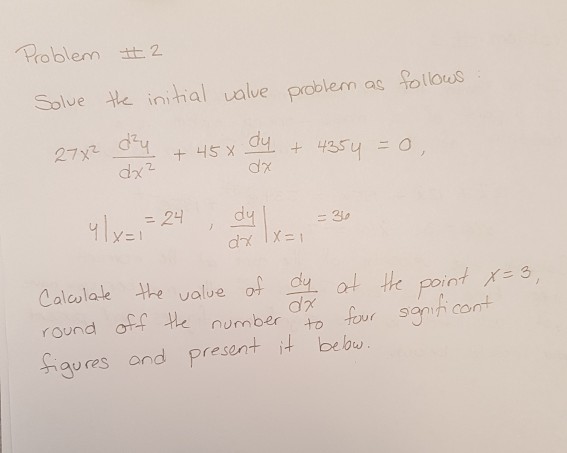 Problem # 2
Solve the initial value problem as follows :
27x² d²y/dx² + 45 x dy/dx + 435y = 0,
y|x=1 = 24 , dy/dx|x=1 = 36
Calculate the value of dy/dx at the point x = 3,
round off the number to four significant
figures and present it below.